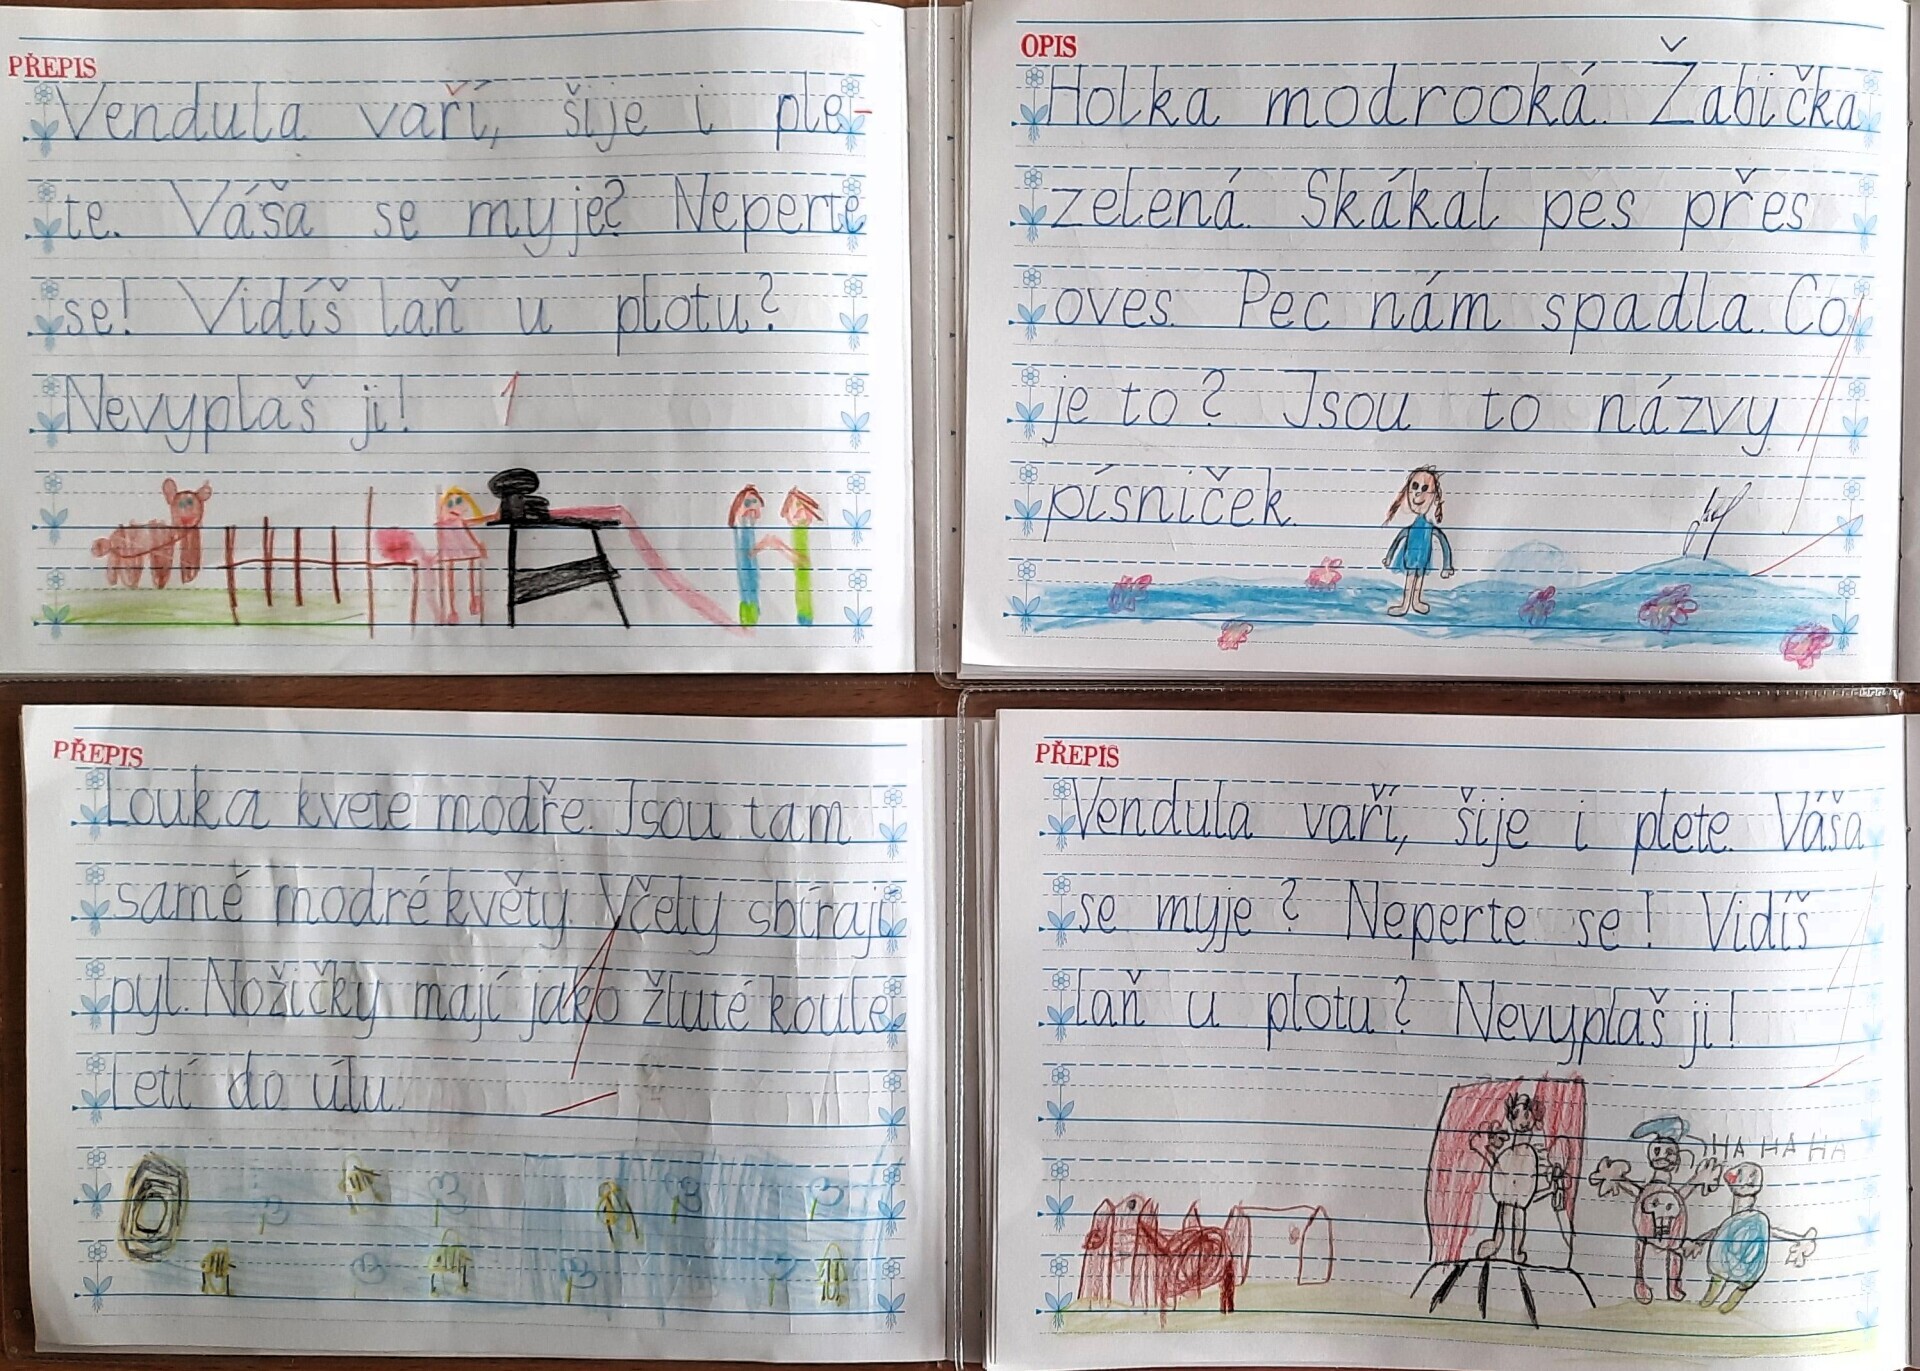 PŘEPIS
Vendula vaří, šije i ple-
te. Váša se myje? Neperte
se! Vidíš laň u plotu?
Nevyplaš ji! 1
OPIS
Holka modrooká. Žabička
zelená. Skákal pes přes
oves. Pec nám spadla. Co
je to? Jsou to názvy
písniček.
PŘEPIS
Louka kvete modře. Jsou tam
samé modré květy. Včely sbírají
pyl. Nožičky mají jako žluté koule.
Letí do úlu.
PŘEPIS
Vendula vaří, šije i plete. Váša
se myje? Neperte se! Vidíš
laň u plotu? Nevyplaš ji!
HA HA HA